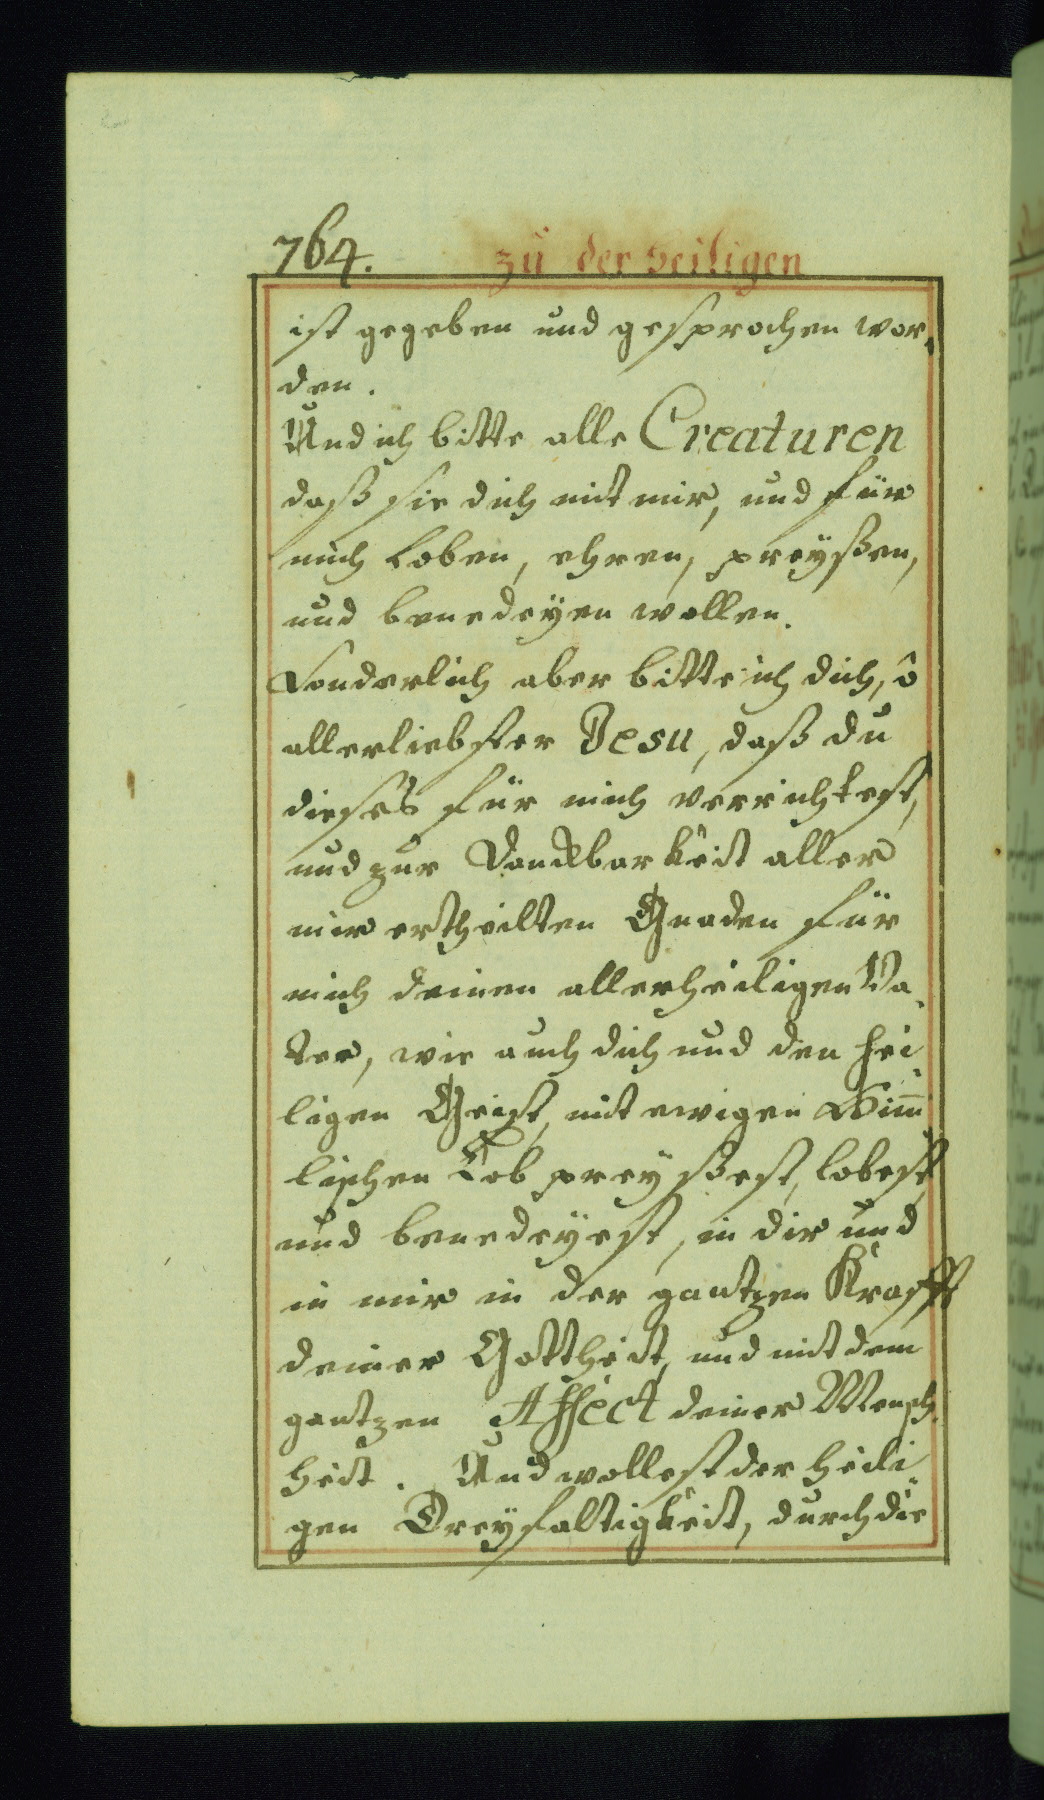 764. zu der heiligen
ist gegeben und gesprochen wor„
den.
Und ich bitte alle Creaturen
daß sie dich mit mir, und für
mich Loben, ehren, preyßen,
und benedeyen wollen.
Sonderlich aber bitte ich dich, ô
allerliebster Jesu, daß du
dieses für mich verrichtest,
und zur Danckbarkeit aller
mir ertheilten Gnaden für
mich deinen allerheiligen Va„
ter, wie auch dich und den hei„
ligen Geist, mit ewigen Him̅
lischen Lob preyßest, lobest,
und benedeyest, in dir und
in mir in der gantzen Krafft
deiner Gottheit, und mit dem
gantzen Affect deiner Mensch„
heit. Und wollest der heili„
gen Dreyfaltigkeit, durch die